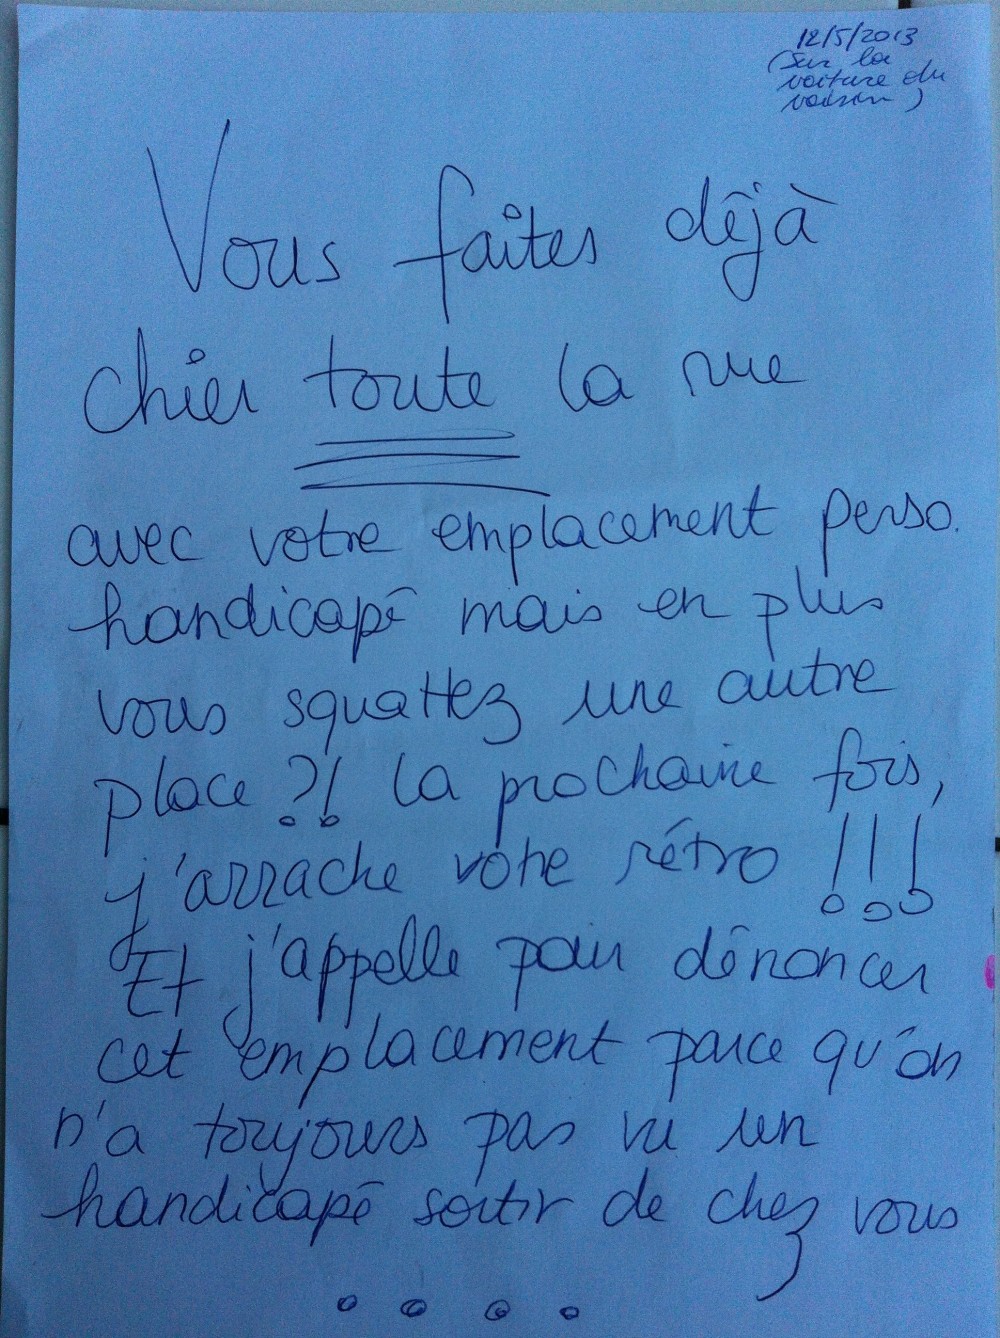 12/5/2013
(Sur la
voiture du
voisin)
Vous faites déjà
chier toute la rue
avec votre emplacement perso.
handicapé mais en plus
vous squattez une autre
place ?! La prochaine fois,
j'arrache votre rétro !!!
Et j'appelle pour dénoncer
cet emplacement parce qu'on
n'a toujours pas vu un
handicapé sortir de chez vous
....